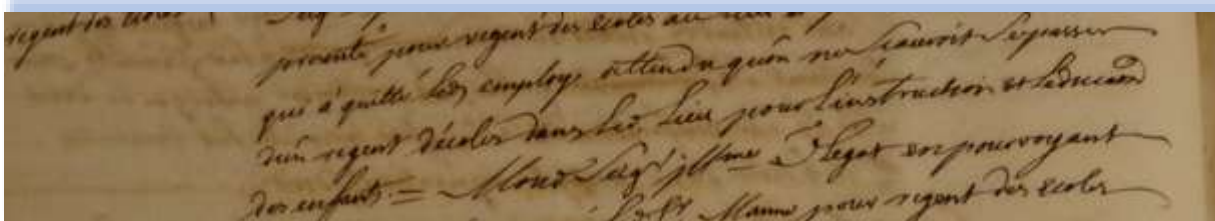 regent des ecoles
presenté pour regent des ecoles au lieu
qui a quitté led employ, attendu quon ne scauroit se passer
dun regent decoles dans led. lieu pour linstruction et leducaon
des enfants = Mond Seigr jllme Vlegat en pourvoyant
Manne pour regent des ecoles